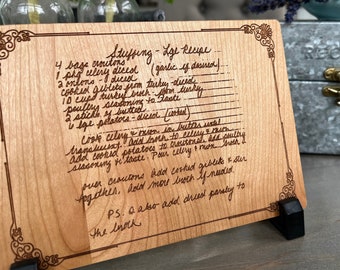 Stuffing - Lge Recipe
4 bags croutons
1 pkg celery diced (garlic if desired)
2 onions - diced
cooked giblets from turkey - diced
10 cups turkey broth - from turkey
poultry seasoning to taste
2 sticks of butter
6 lge potatoes - diced (cooked)
Cook celery & onion in butter until
translucent. Add broth to celery & onion
add cooked potatoes to croutons. Add poultry
seasoning to taste. Pour celery & onion broth
over croutons add cooked giblets & stir
together, add more broth if needed.
P.S. i also add dried parsley to
the broth.